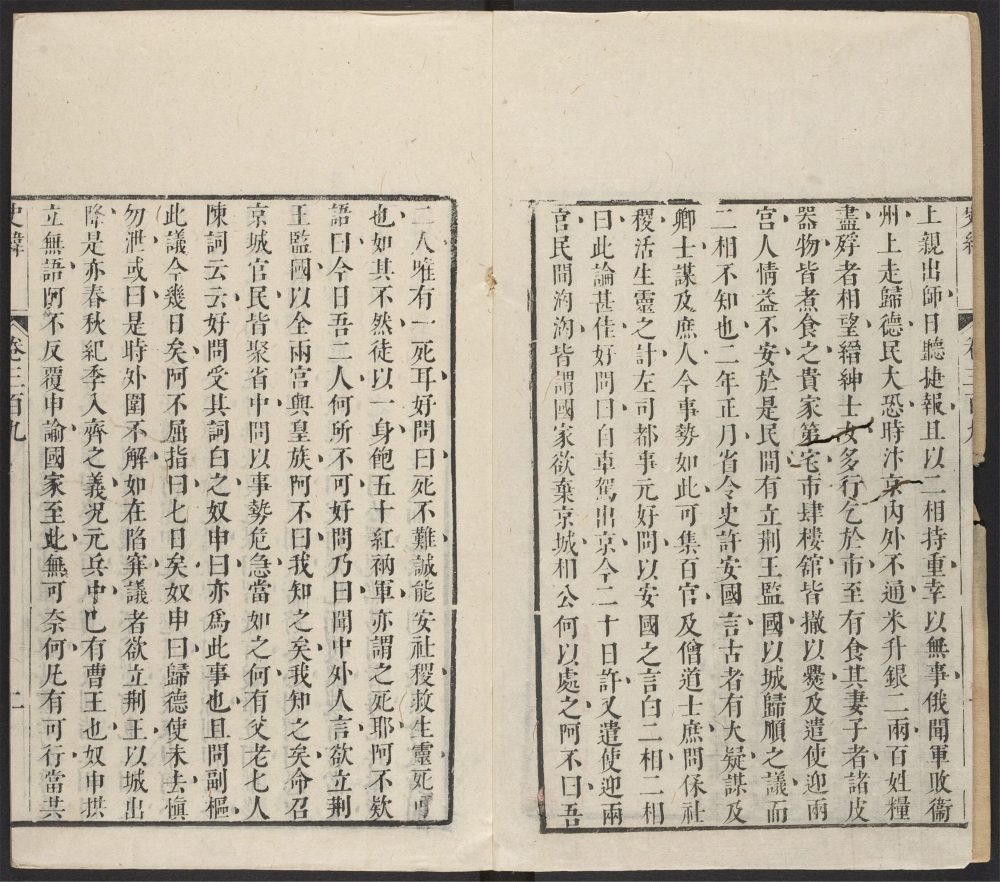 史緯 卷三百九
上親出師日聽捷報且以二相持重幸以無事俄聞軍敗衞
州上走歸德民大恐時汴京內外不通米升銀二兩百姓糧
盡殍者相望縉紳士女多行乞於市至有食其妻子者諸皮
器物皆煮食之貴家第宅市肆樓舘皆撤以爨及遣使迎兩
宮人情益不安於是民間有立荆王監國以城歸順之議而
二相不知也二年正月省令史許安國言古者有大疑謀及
卿士謀及庶人今事勢如此可集百官及僧道士庶問保社
稷活生靈之計左司都事元好問以安國之言白二相二相
曰此論甚佳好問曰自車駕出京今二十日許又遣使迎兩
宮民間洶洶皆謂國家欲棄京城相公何以處之阿不曰吾
二人唯有一死耳好問曰死不難誠能安社稷救生靈死可
也如其不然徒以一身飽五十紅衲軍亦謂之死耶阿不欵
語曰今日吾二人何所不可好問乃曰聞中外人言欲立荆
王監國以全兩宮與皇族阿不曰我知之矣我知之矣命召
京城官民皆聚省中問以事勢危急當如之何有父老七人
陳詞云云好問受其詞白之奴申曰亦爲此事也且問副樞
此議今幾日矣阿不屈指曰七日矣奴申曰歸德使未去愼
勿泄或曰是時外圍不解如在陷穽議者欲立荆王以城出
降是亦春秋紀季入齊之義况元兵中已有曹王也奴申拱
立無語阿不反覆申諭國家至此無可奈何凡有可行當共
史緯 卷三百九 二